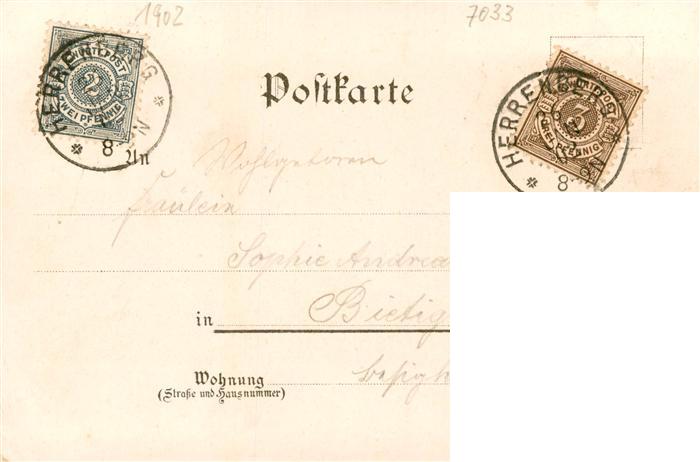 1902
7033
K.WÜRTT.POST
2
ZWEI PFENNIG
HERRENBERG
8-9 N
Postkarte
3
DREI PFENNIG
HERRENBERG
8-9 N
An
Wohlgeboren
Fräulein
Sophie Andrea
in Bietig
Wohnung Besigh
(Straße und Hausnummer)